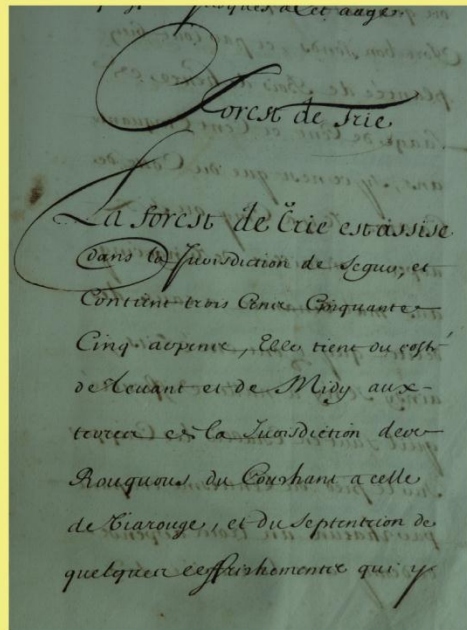 jusques à cet aage.
Forest de Trie
La forest de Trie est assise
dans la Jurisdiction de Segur, et
Contient trois Cens Cinquante
Cinq arpens, Elle tient du costé
de Levant et de Midy aux
terres et la Jurisdiction des
Rouquous du Couchant a celle
de Tiarouge, et du Septentrion de
quelques effrichemente qui y